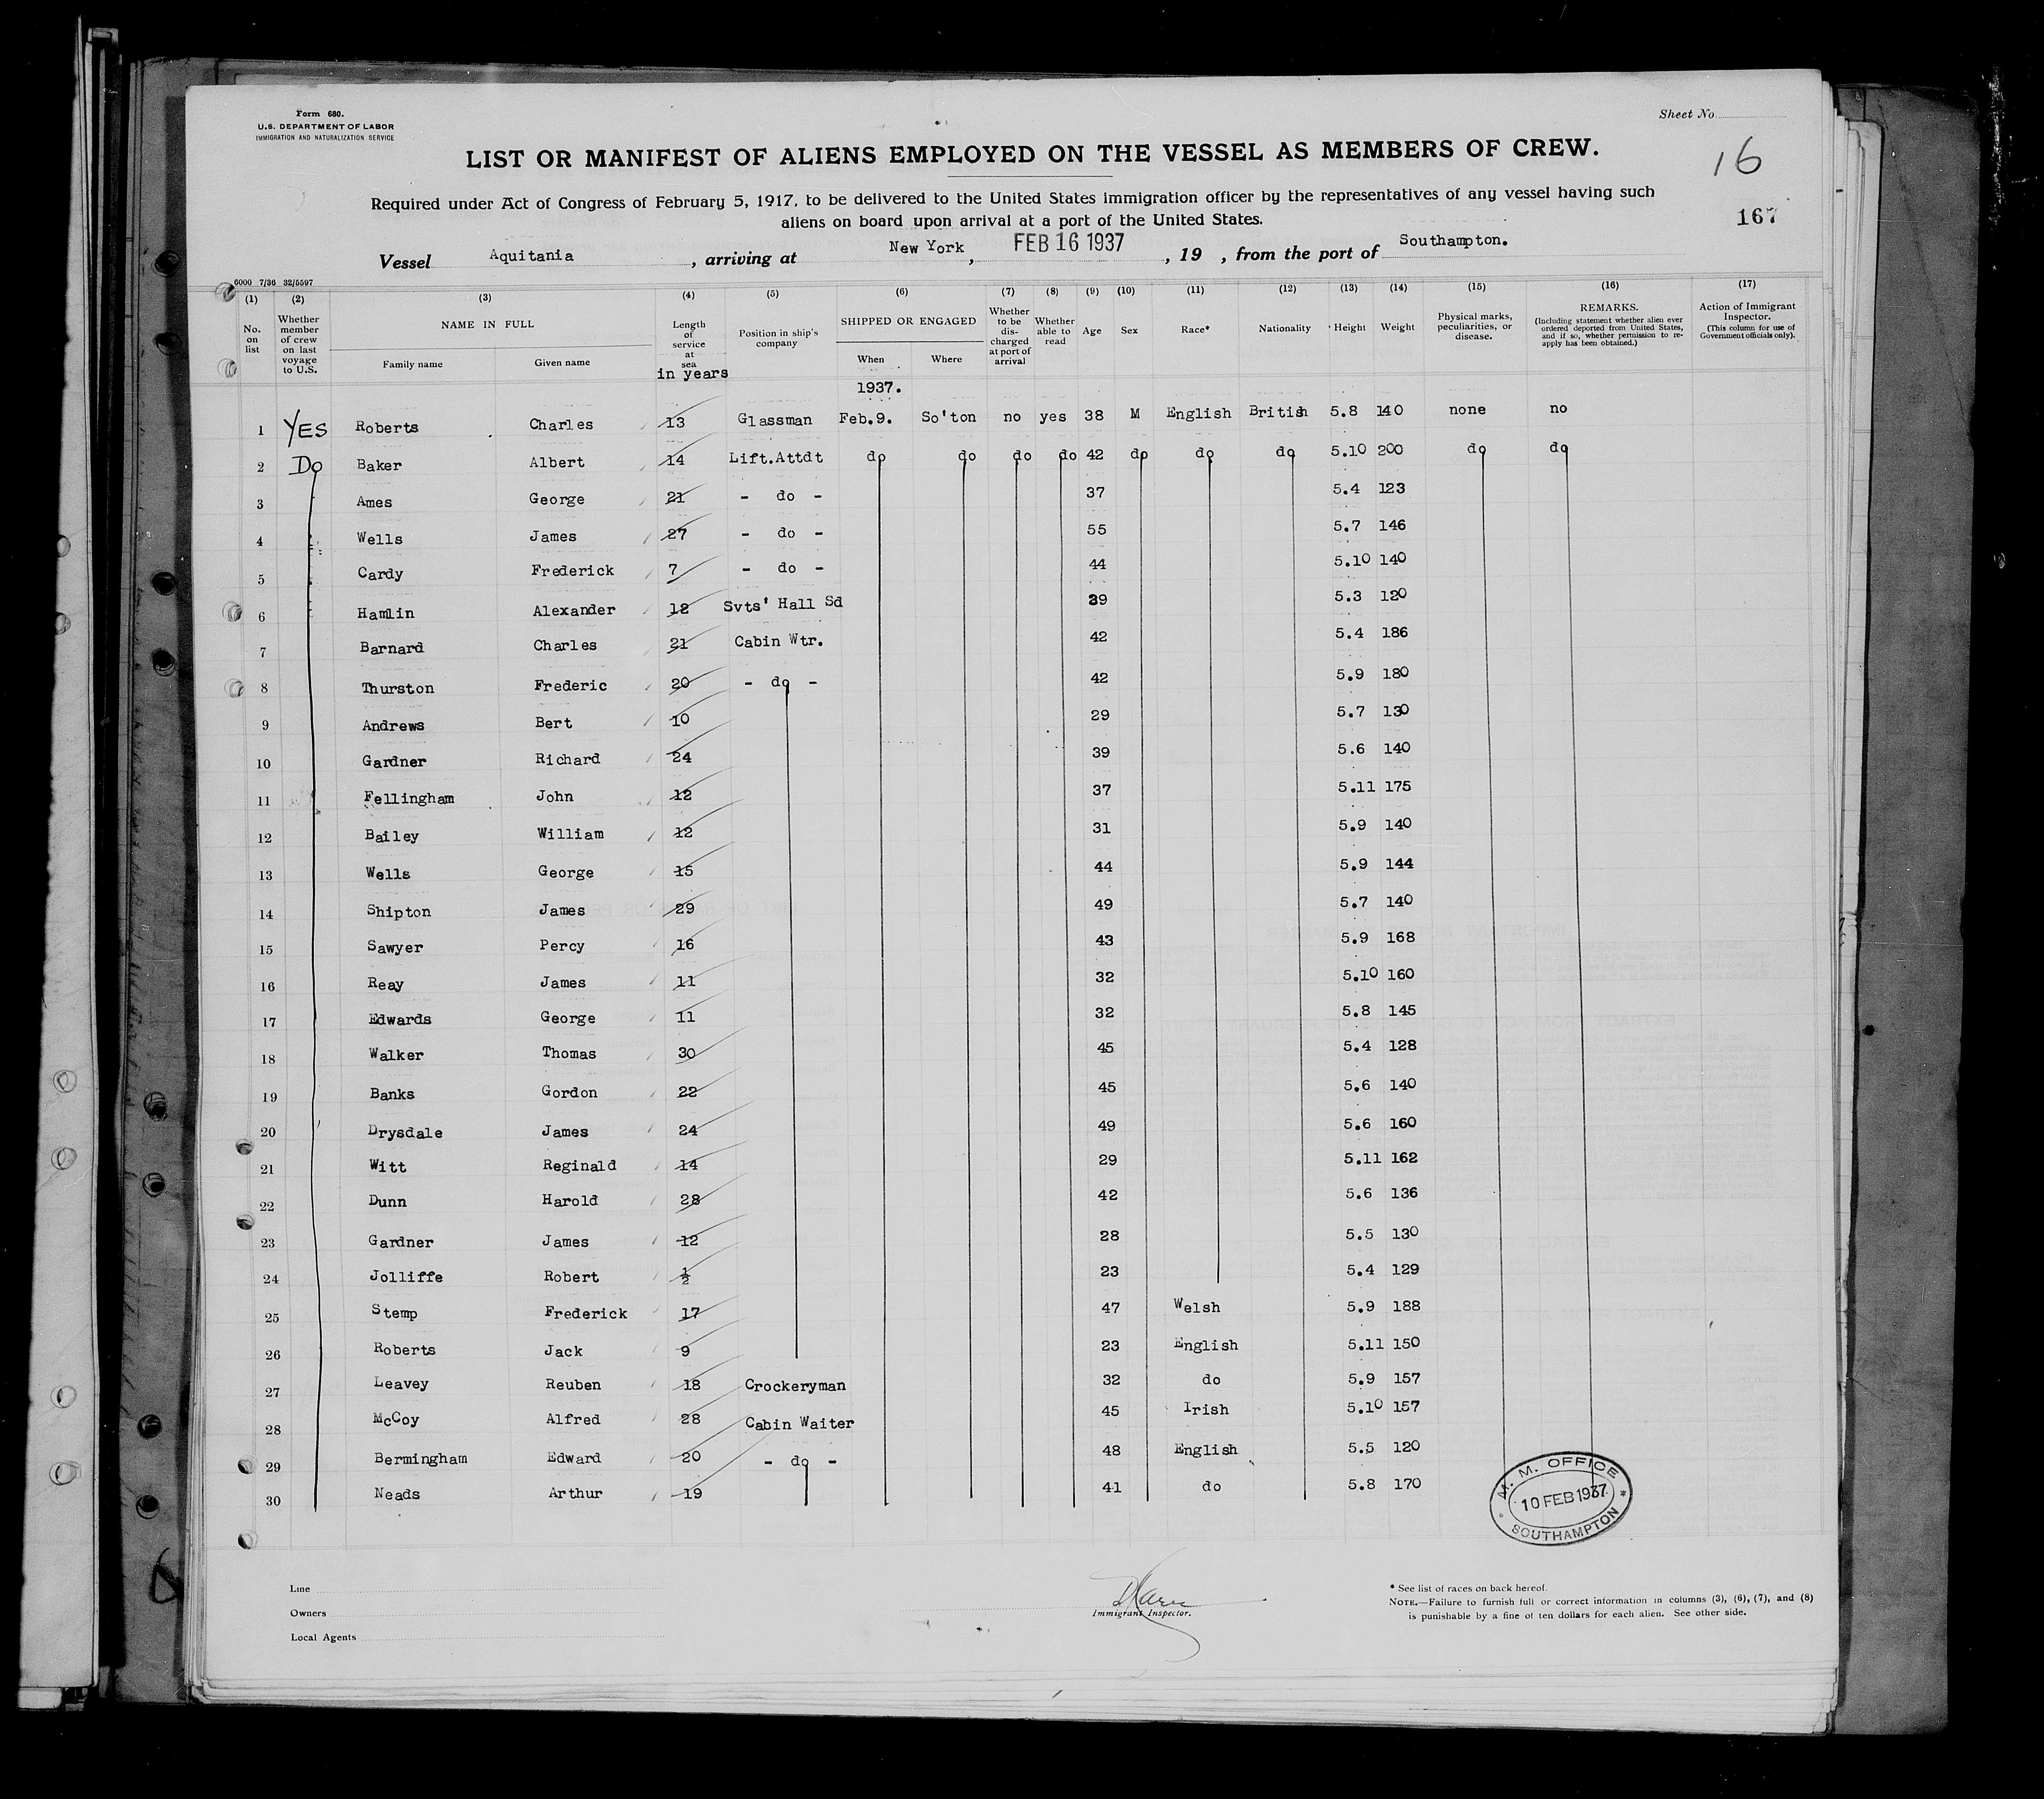 Form 680.
U.S. DEPARTMENT OF LABOR
IMMIGRATION AND NATURALIZATION SERVICE
Sheet No.
LIST OR MANIFEST OF ALIENS EMPLOYED ON THE VESSEL AS MEMBERS OF CREW.
16
Required under Act of Congress of February 5, 1917, to be delivered to the United States immigration officer by the representatives of any vessel having such
aliens on board upon arrival at a port of the United States.
167
Vessel Aquitania, arriving at New York, FEB 16 1937, 19 , from the port of Southampton.
6000 7/36 32/5597
(1) (2) (3) (4) (5) (6) (7) (8) (9) (10) (11) (12) (13) (14) (15) (16) (17)
No. on list
Whether member of crew on last voyage to U.S.
NAME IN FULL
Family name Given name
Length of service at sea
in years
Position in ship's company
SHIPPED OR ENGAGED
When Where
Whether to be discharged at port of arrival
Whether able to read
Age
Sex
Race*
Nationality
Height
Weight
Physical marks, peculiarities, or disease.
REMARKS.
(Including statement whether alien ever ordered deported from United States, and if so, whether permission to re-apply has been obtained.)
Action of Immigrant Inspector.
(This column for use of Government officials only).
1937.
1 YES Roberts Charles 13 Glassman Feb.9. So'ton no yes 38 M English British 5.8 140 none no
2 Do Baker Albert 14 Lift.Attdt do do do do 42 do do do 5.10 200 do do
3 Ames George 21 - do - 37 5.4 123
4 Wells James 27 - do - 55 5.7 146
5 Cardy Frederick 7 - do - 44 5.10 140
6 Hamlin Alexander 12 Svts' Hall Sd 39 5.3 120
7 Barnard Charles 21 Cabin Wtr. 42 5.4 186
8 Thurston Frederic 20 - do - 42 5.9 180
9 Andrews Bert 10 29 5.7 130
10 Gardner Richard 24 39 5.6 140
11 Fellingham John 12 37 5.11 175
12 Bailey William 12 31 5.9 140
13 Wells George 15 44 5.9 144
14 Shipton James 29 49 5.7 140
15 Sawyer Percy 16 43 5.9 168
16 Reay James 11 32 5.10 160
17 Edwards George 11 32 5.8 145
18 Walker Thomas 30 45 5.4 128
19 Banks Gordon 22 45 5.6 140
20 Drysdale James 24 49 5.6 160
21 Witt Reginald 14 29 5.11 162
22 Dunn Harold 28 42 5.6 136
23 Gardner James 12 28 5.5 130
24 Jolliffe Robert ½ 23 5.4 129
25 Stemp Frederick 17 47 Welsh 5.9 188
26 Roberts Jack 9 23 English 5.11 150
27 Leavey Reuben 18 Crockeryman 32 do 5.9 157
28 McCoy Alfred 28 Cabin Waiter 45 Irish 5.10 157
29 Bermingham Edward 20 - do - 48 English 5.5 120
30 Neads Arthur 19 41 do 5.8 170
M. M. OFFICE
10 FEB 1937
SOUTHAMPTON
Line
Owners
Local Agents
Immigrant Inspector.
* See list of races on back hereof.
NOTE.—Failure to furnish full or correct information in columns (3), (6), (7), and (8)
is punishable by a fine of ten dollars for each alien. See other side.